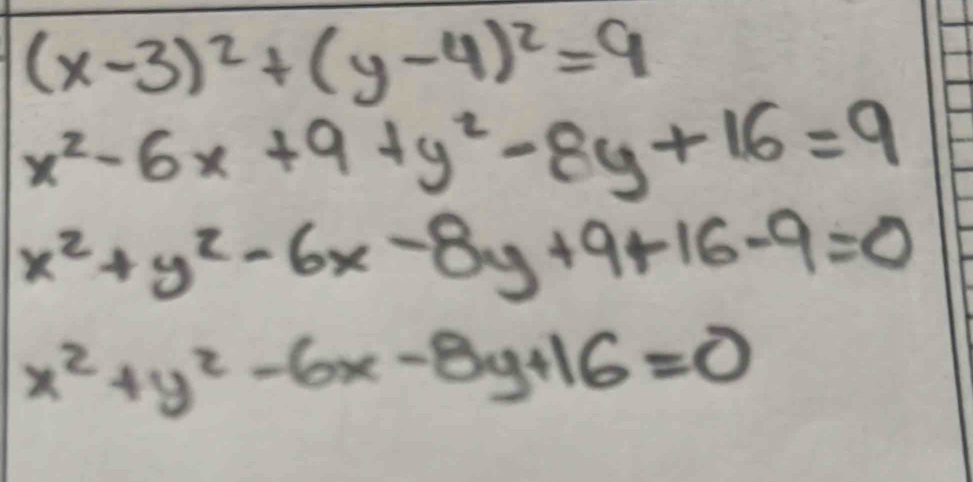 (x-3)²+(y-4)²=9
x²-6x+9+y²-8y+16=9
x²+y²-6x-8y+9+16-9=0
x²+y²-6x-8y+16=0